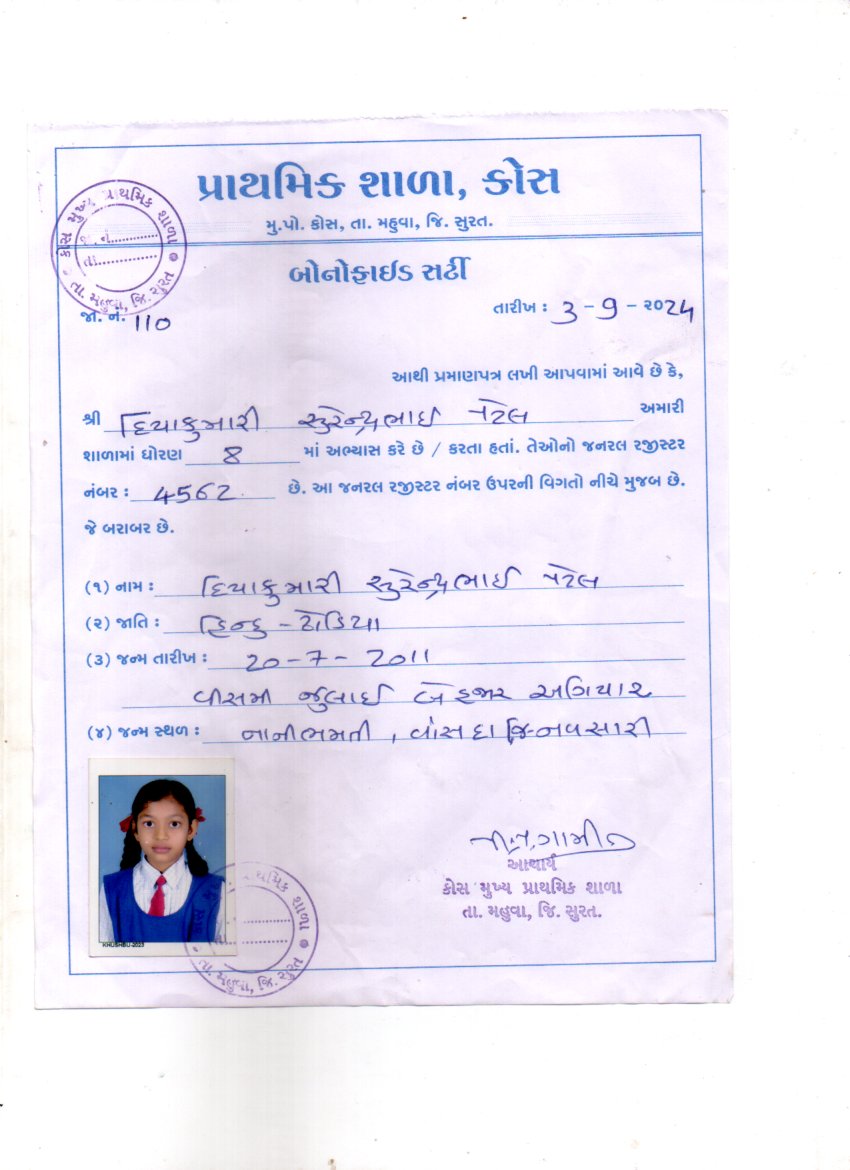 પ્રાથમિક શાળા, કોસ
મુ.પો. કોસ, તા. મહુવા, જિ. સુરત.
કોસ મુખ્ય પ્રાથમિક શાળા
જા. નં.
તા.
તા. મહુવા, જિ. સુરત
બોનોફાઈડ સર્ટી
તારીખ : 3 - 9 - ૨૦24
જા. નં. 110
આથી પ્રમાણપત્ર લખી આપવામાં આવે છે કે,
શ્રી દિયાકુમારી સુરેન્દ્રભાઈ પટેલ અમારી
શાળામાં ધોરણ 8 માં અભ્યાસ કરે છે / કરતા હતાં. તેઓનો જનરલ રજીસ્ટર
નંબર : 4562 છે. આ જનરલ રજીસ્ટર નંબર ઉપરની વિગતો નીચે મુજબ છે.
જે બરાબર છે.
(૧) નામ : દિયાકુમારી સુરેન્દ્રભાઈ પટેલ
(૨) જાતિ : હિન્દુ - ઢોડિયા
(૩) જન્મ તારીખ : 20 - 7 - 2011
વીસમી જુલાઈ બે હજાર અગિયાર
(૪) જન્મ સ્થળ : નાનીભમતી, વાંસદા જિ-નવસારી
આચાર્ય
કોસ મુખ્ય પ્રાથમિક શાળા
તા. મહુવા, જિ. સુરત.
KHUSHBU-2023
કોસ પ્રાથમિક શાળા
તા. મહુવા, જિ. સુરત